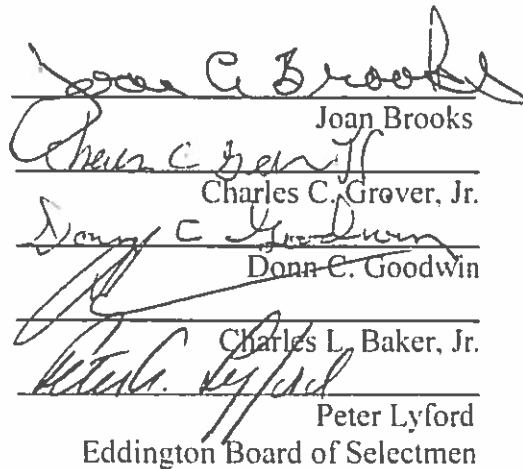 Joan C Brooks
Joan Brooks
Charles C. Grover, Jr.
Donn C Goodwin
Donn C. Goodwin
Charles L. Baker, Jr.
Peter A. Lyford
Peter Lyford
Eddington Board of Selectmen